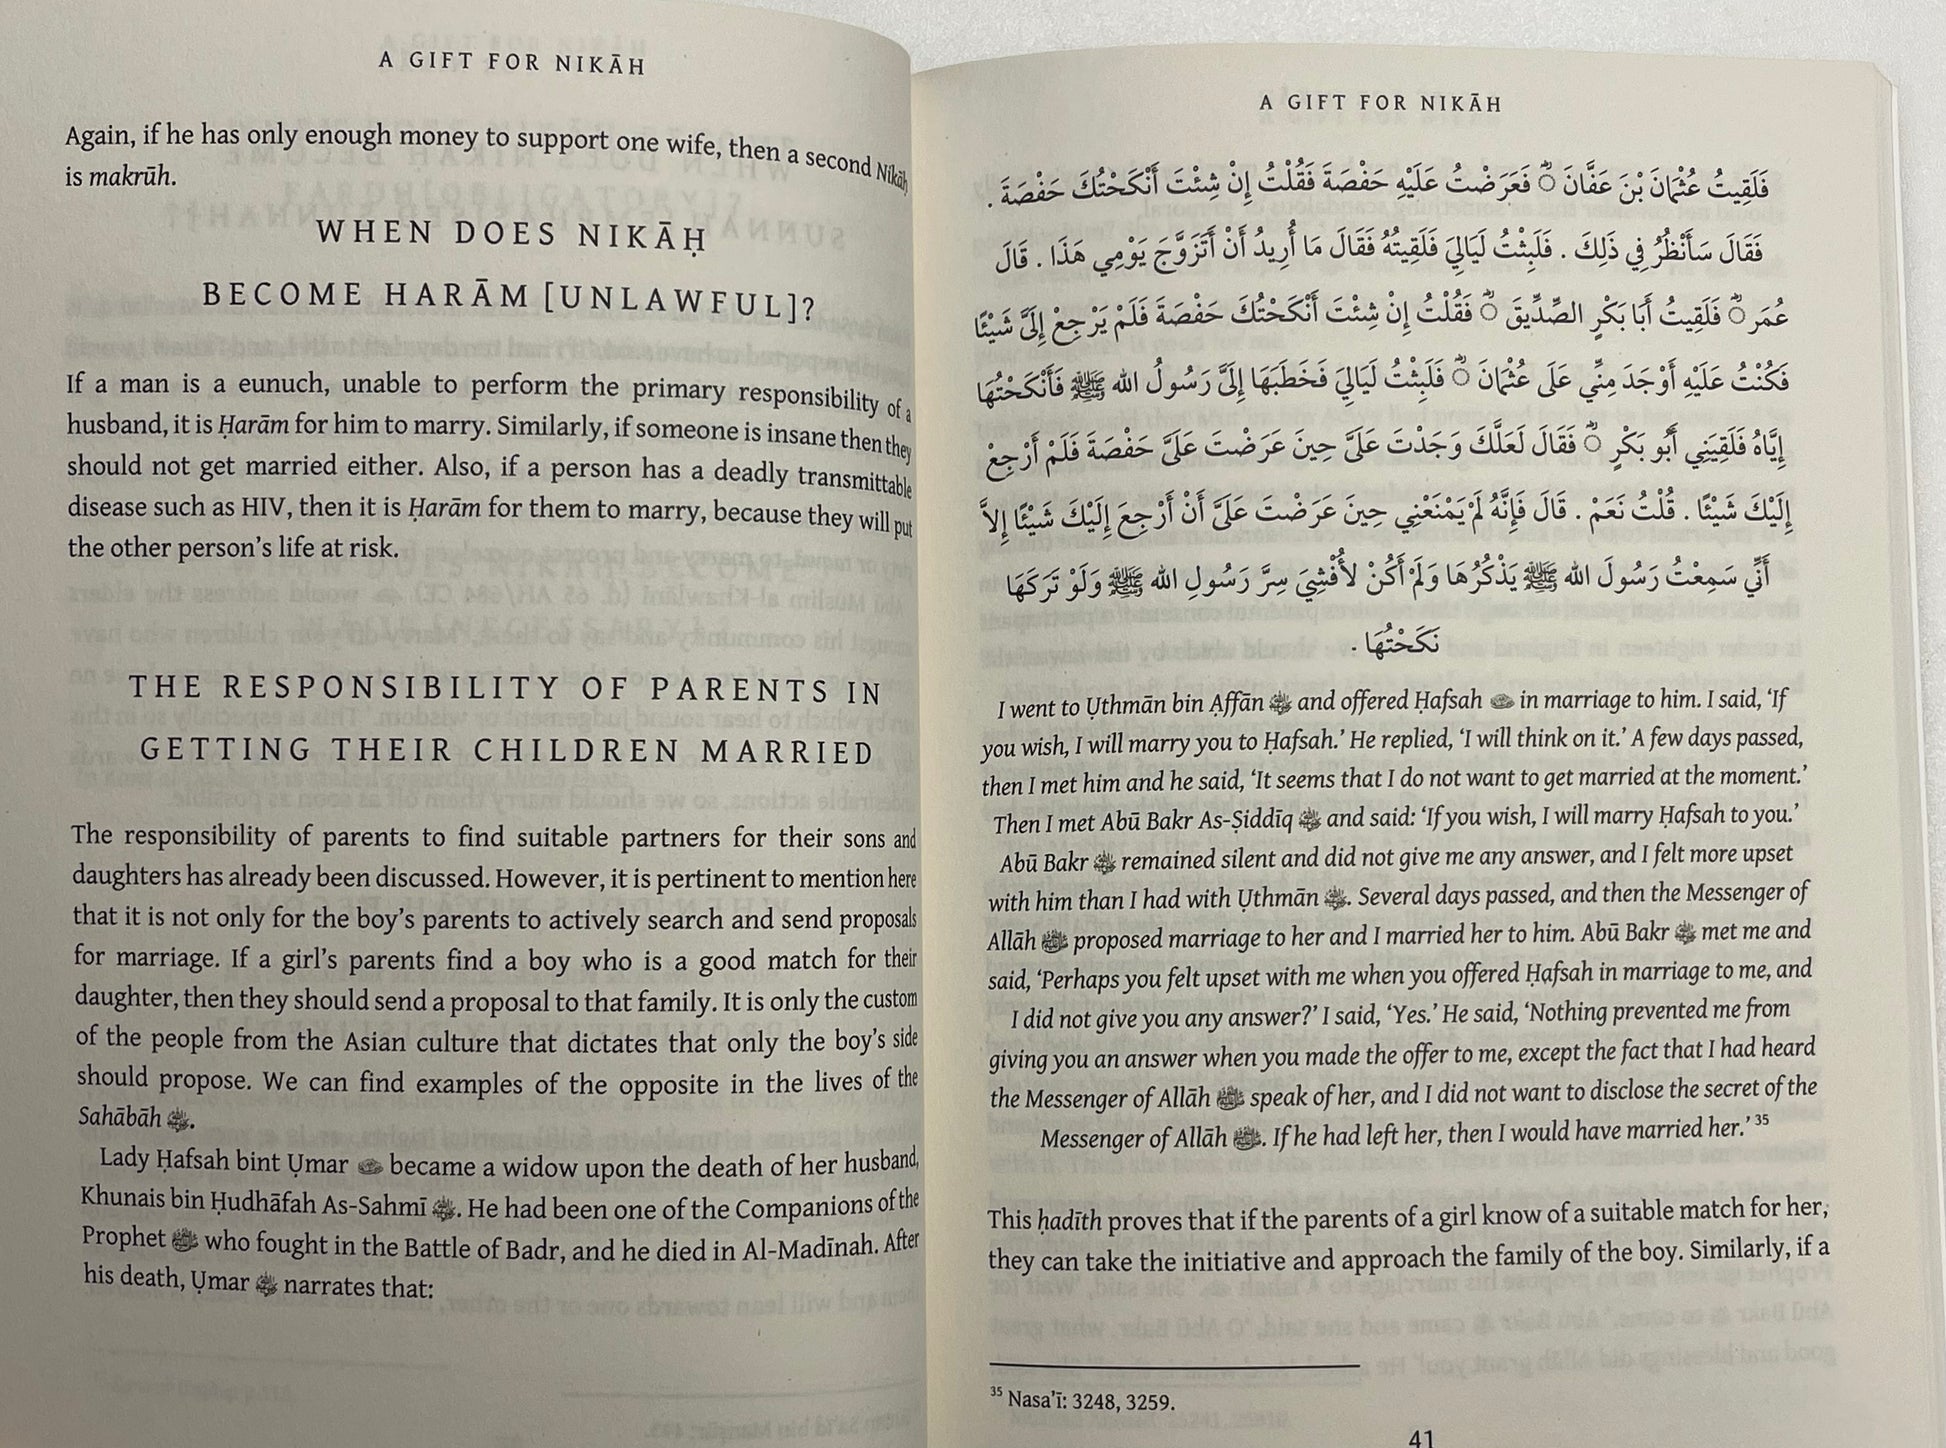 A GIFT FOR NIKĀH
Again, if he has only enough money to support one wife, then a second Nikāḥ
is makrūh.
WHEN DOES NIKĀḤ
BECOME HARĀM [UNLAWFUL]?
If a man is a eunuch, unable to perform the primary responsibility of a
husband, it is Ḥarām for him to marry. Similarly, if someone is insane then they
should not get married either. Also, if a person has a deadly transmittable
disease such as HIV, then it is Ḥarām for them to marry, because they will put
the other person's life at risk.
THE RESPONSIBILITY OF PARENTS IN
GETTING THEIR CHILDREN MARRIED
The responsibility of parents to find suitable partners for their sons and
daughters has already been discussed. However, it is pertinent to mention here
that it is not only for the boy's parents to actively search and send proposals
for marriage. If a girl's parents find a boy who is a good match for their
daughter, then they should send a proposal to that family. It is only the custom
of the people from the Asian culture that dictates that only the boy's side
should propose. We can find examples of the opposite in the lives of the
Sahābāh.
Lady Ḥafsah bint Ụmar became a widow upon the death of her husband,
Khunais bin Ḥudhāfah As-Sahmī. He had been one of the Companions of the
Prophet ﷺ who fought in the Battle of Badr, and he died in Al-Madīnah. After
his death, Ụmar narrates that:
A GIFT FOR NIKĀH
فَلَقِيتُ عُثْمَانَ بْنَ عَفَّانَ فَعَرَضْتُ عَلَيْهِ حَفْصَةَ فَقُلْتُ إِنْ شِئْتَ أَنْكَحْتُكَ حَفْصَةَ .
فَقَالَ سَأَنْظُرُ فِي ذَلِكَ . فَلَبِثْتُ لَيَالِيَ فَلَقِيتُهُ فَقَالَ مَا أُرِيدُ أَنْ أَتَزَوَّجَ يَوْمِي هَذَا . قَالَ
عُمَر فَلَقِيتُ أَبَا بَكْرٍ الصِّدِّيقَ فَقُلْتُ إِنْ شِئْتَ أَنْكَحْتُكَ حَفْصَةَ فَلَمْ يَرْجِعْ إِلَىَّ شَيْئًا
فَكُنْتُ عَلَيْهِ أَوْجَدَ مِنِّي عَلَى عُثْمَانَ فَلَبِثْتُ لَيَالِيَ فَخَطَبَهَا إِلَىَّ رَسُولُ الله ﷺ فَأَنْكَحْتُهَا
إِيَّاهُ فَلَقِيَنِي أَبُو بَكْرٍ فَقَالَ لَعَلَّكَ وَجَدْتَ عَلَىَّ حِينَ عَرَضْتَ عَلَىَّ حَفْصَةَ فَلَمْ أَرْجِعْ
إِلَيْكَ شَيْئًا . قُلْتُ نَعَمْ . قَالَ فَإِنَّهُ لَمْ يَمْنَعْنِي حِينَ عَرَضْتَ عَلَىَّ أَنْ أَرْجِعَ إِلَيْكَ شَيْئًا إِلاَّ
أَنِّي سَمِعْتُ رَسُولَ الله ﷺ يَذْكُرُهَا وَلَمْ أَكُنْ لأُفْشِيَ سِرَّ رَسُولِ الله ﷺ وَلَوْ تَرَكَهَا
نَكَحْتُهَا .
I went to Ụthmān bin Ạffān and offered Ḥafsah in marriage to him. I said, 'If
you wish, I will marry you to Ḥafsah.' He replied, 'I will think on it.' A few days passed,
then I met him and he said, 'It seems that I do not want to get married at the moment.'
Then I met Abū Bakr As-Ṣiddīq and said: 'If you wish, I will marry Ḥafsah to you.'
Abū Bakr remained silent and did not give me any answer, and I felt more upset
with him than I had with Ụthmān. Several days passed, and then the Messenger of
Allāh ﷺ proposed marriage to her and I married her to him. Abū Bakr met me and
said, 'Perhaps you felt upset with me when you offered Ḥafsah in marriage to me, and
I did not give you any answer?' I said, 'Yes.' He said, 'Nothing prevented me from
giving you an answer when you made the offer to me, except the fact that I had heard
the Messenger of Allāh ﷺ speak of her, and I did not want to disclose the secret of the
Messenger of Allāh ﷺ. If he had left her, then I would have married her.' 35
This ḥadīth proves that if the parents of a girl know of a suitable match for her,
they can take the initiative and approach the family of the boy. Similarly, if a
35 Nasa'ī: 3248, 3259.
41